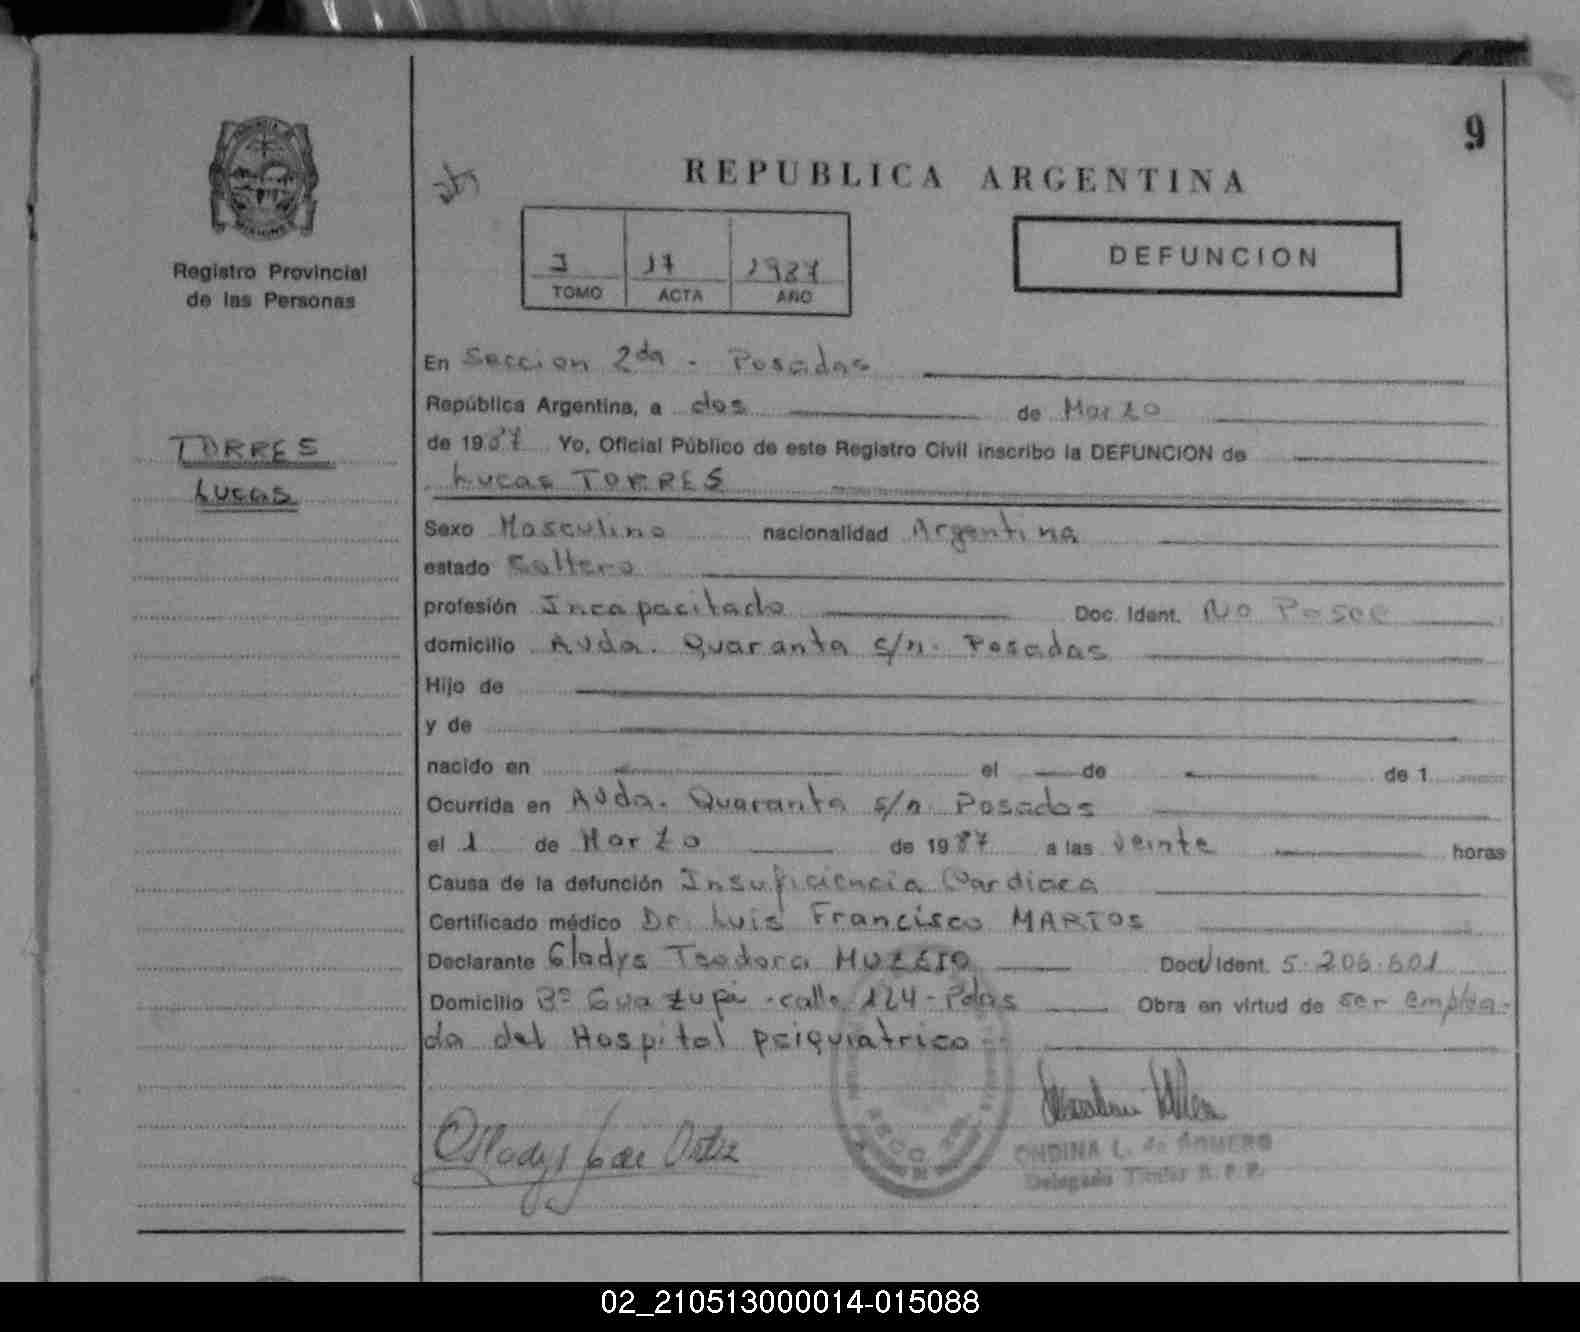 9
REPUBLICA ARGENTINA
Registro Provincial
de las Personas
I 17 1987
TOMO ACTA AÑO
DEFUNCION
TORRES
LUCAS
En Seccion 2da - Posadas
República Argentina, a dos de Marzo
de 1987 Yo, Oficial Público de este Registro Civil inscribo la DEFUNCION de
Lucas TORRES
Sexo Masculino nacionalidad Argentina
estado Soltero
profesión Incapacitado Doc. Ident. No Posee
domicilio Avda. Quaranta s/n. Posadas
Hijo de
y de
nacido en el de de 1
Ocurrida en Avda. Quaranta s/n Posadas
el 1 de Marzo de 1987 a las veinte horas
Causa de la defunción Insuficiencia Cardiaca
Certificado médico Dr. Luis Francisco MARTOS
Declarante Gladys Teodora Doc. Ident. 5.206.601
Domicilio Bº Guazupi - calle 124 - Pdas Obra en virtud de ser emplea-
da del Hospital psiquiatrico
ONDINA L. de ROMERO
Delegado Titular R. P. P.
02_210513000014-015088